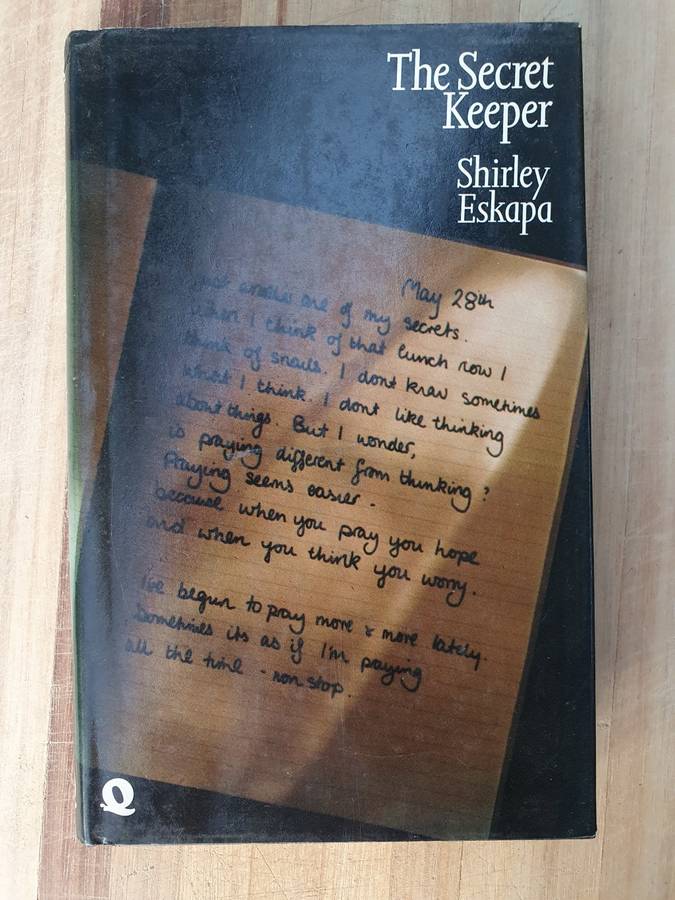 The Secret
Keeper
Shirley
Eskapa
May 28th
Just another one of my secrets.
When I think of that lunch now I
think of snails. I dont know sometimes
what I think. I dont like thinking
about things. But I wonder,
is praying different from thinking?
Praying seems easier.
because when you pray you hope
and when you think you worry.
I've begun to pray more & more lately.
Sometimes its as if I'm praying
all the time - non stop.
Q